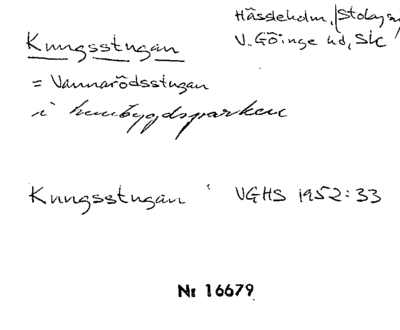 Hässleholm, /Stoby sn
Kungsstugan
V. Göinge hd, Sk
= Vannarödsstugan
i hembygdsparken
Kungsstugan VGHS 1952:33
Nr 16679